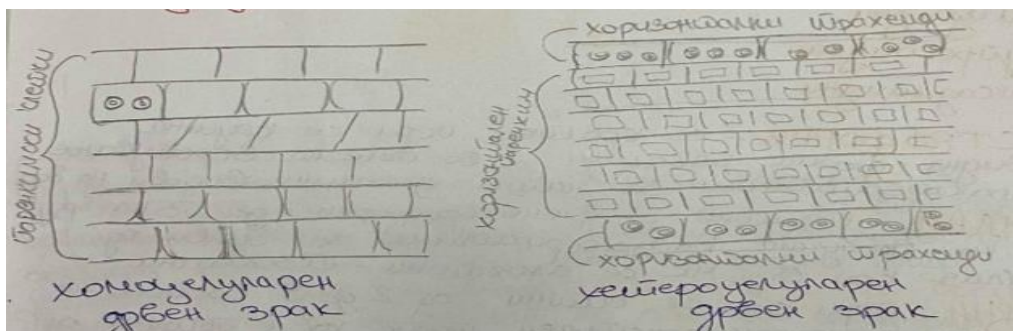 паренхимски клетки
хомоцелуларен
дрвен зрак
хоризонтални трахеиди
хоризонтален
паренхим
хоризонтални трахеиди
хетероцелуларен
дрвен зрак